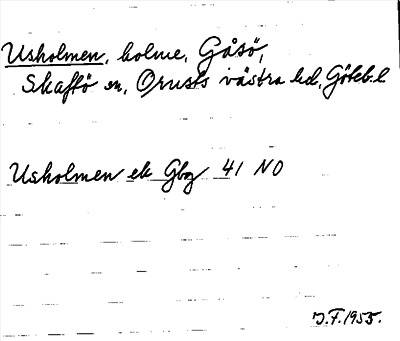 Usholmen, holme, Gåsö,
Skaftö sn, Orusts västra hd, Göteb. l
Usholmen ek Gbg 41 NO
J.F. 1955.